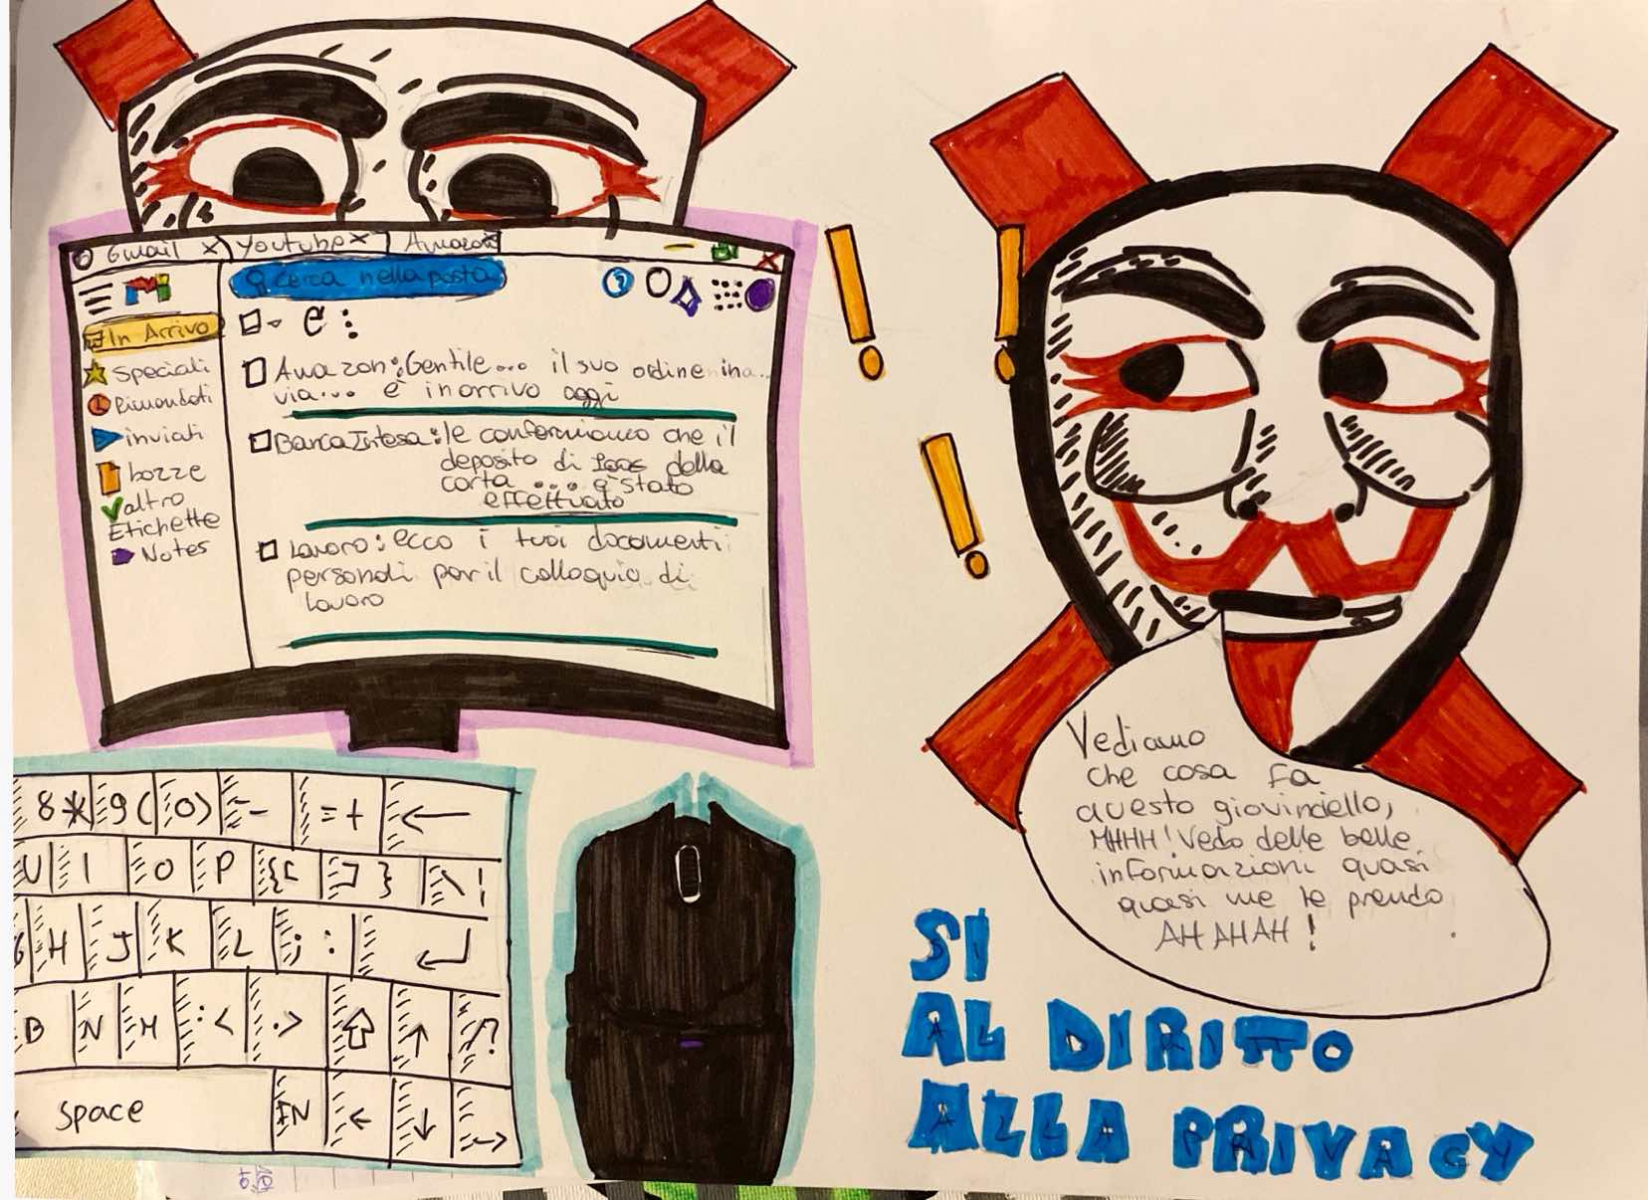 Gmail x Youtube x Amazon x
cerca nella posta
In Arrivo
Speciali
Rimandati
inviati
bozze
altro
Etichette
Notes
Amazon: Gentile... il suo ordine in a...
via... è in arrivo oggi
Banca Intesa: le confermiamo che il
deposito di della
carta ... è stato
effettuato
Lavoro: ecco i tuoi documenti
personali per il colloquio di
lavoro
! !
!
Vediamo
che cosa fa
questo giovinciello,
MHHH! Vedo delle belle
informazioni quasi
quasi me le prendo
AHAHAH!
8* 9( 0) - =+ ←
U I O P {[ ]} \!
G H J K L ;:
B N M < > ↑ /?
space FN ← ↓ →
SI
AL DIRITTO
ALLA PRIVACY